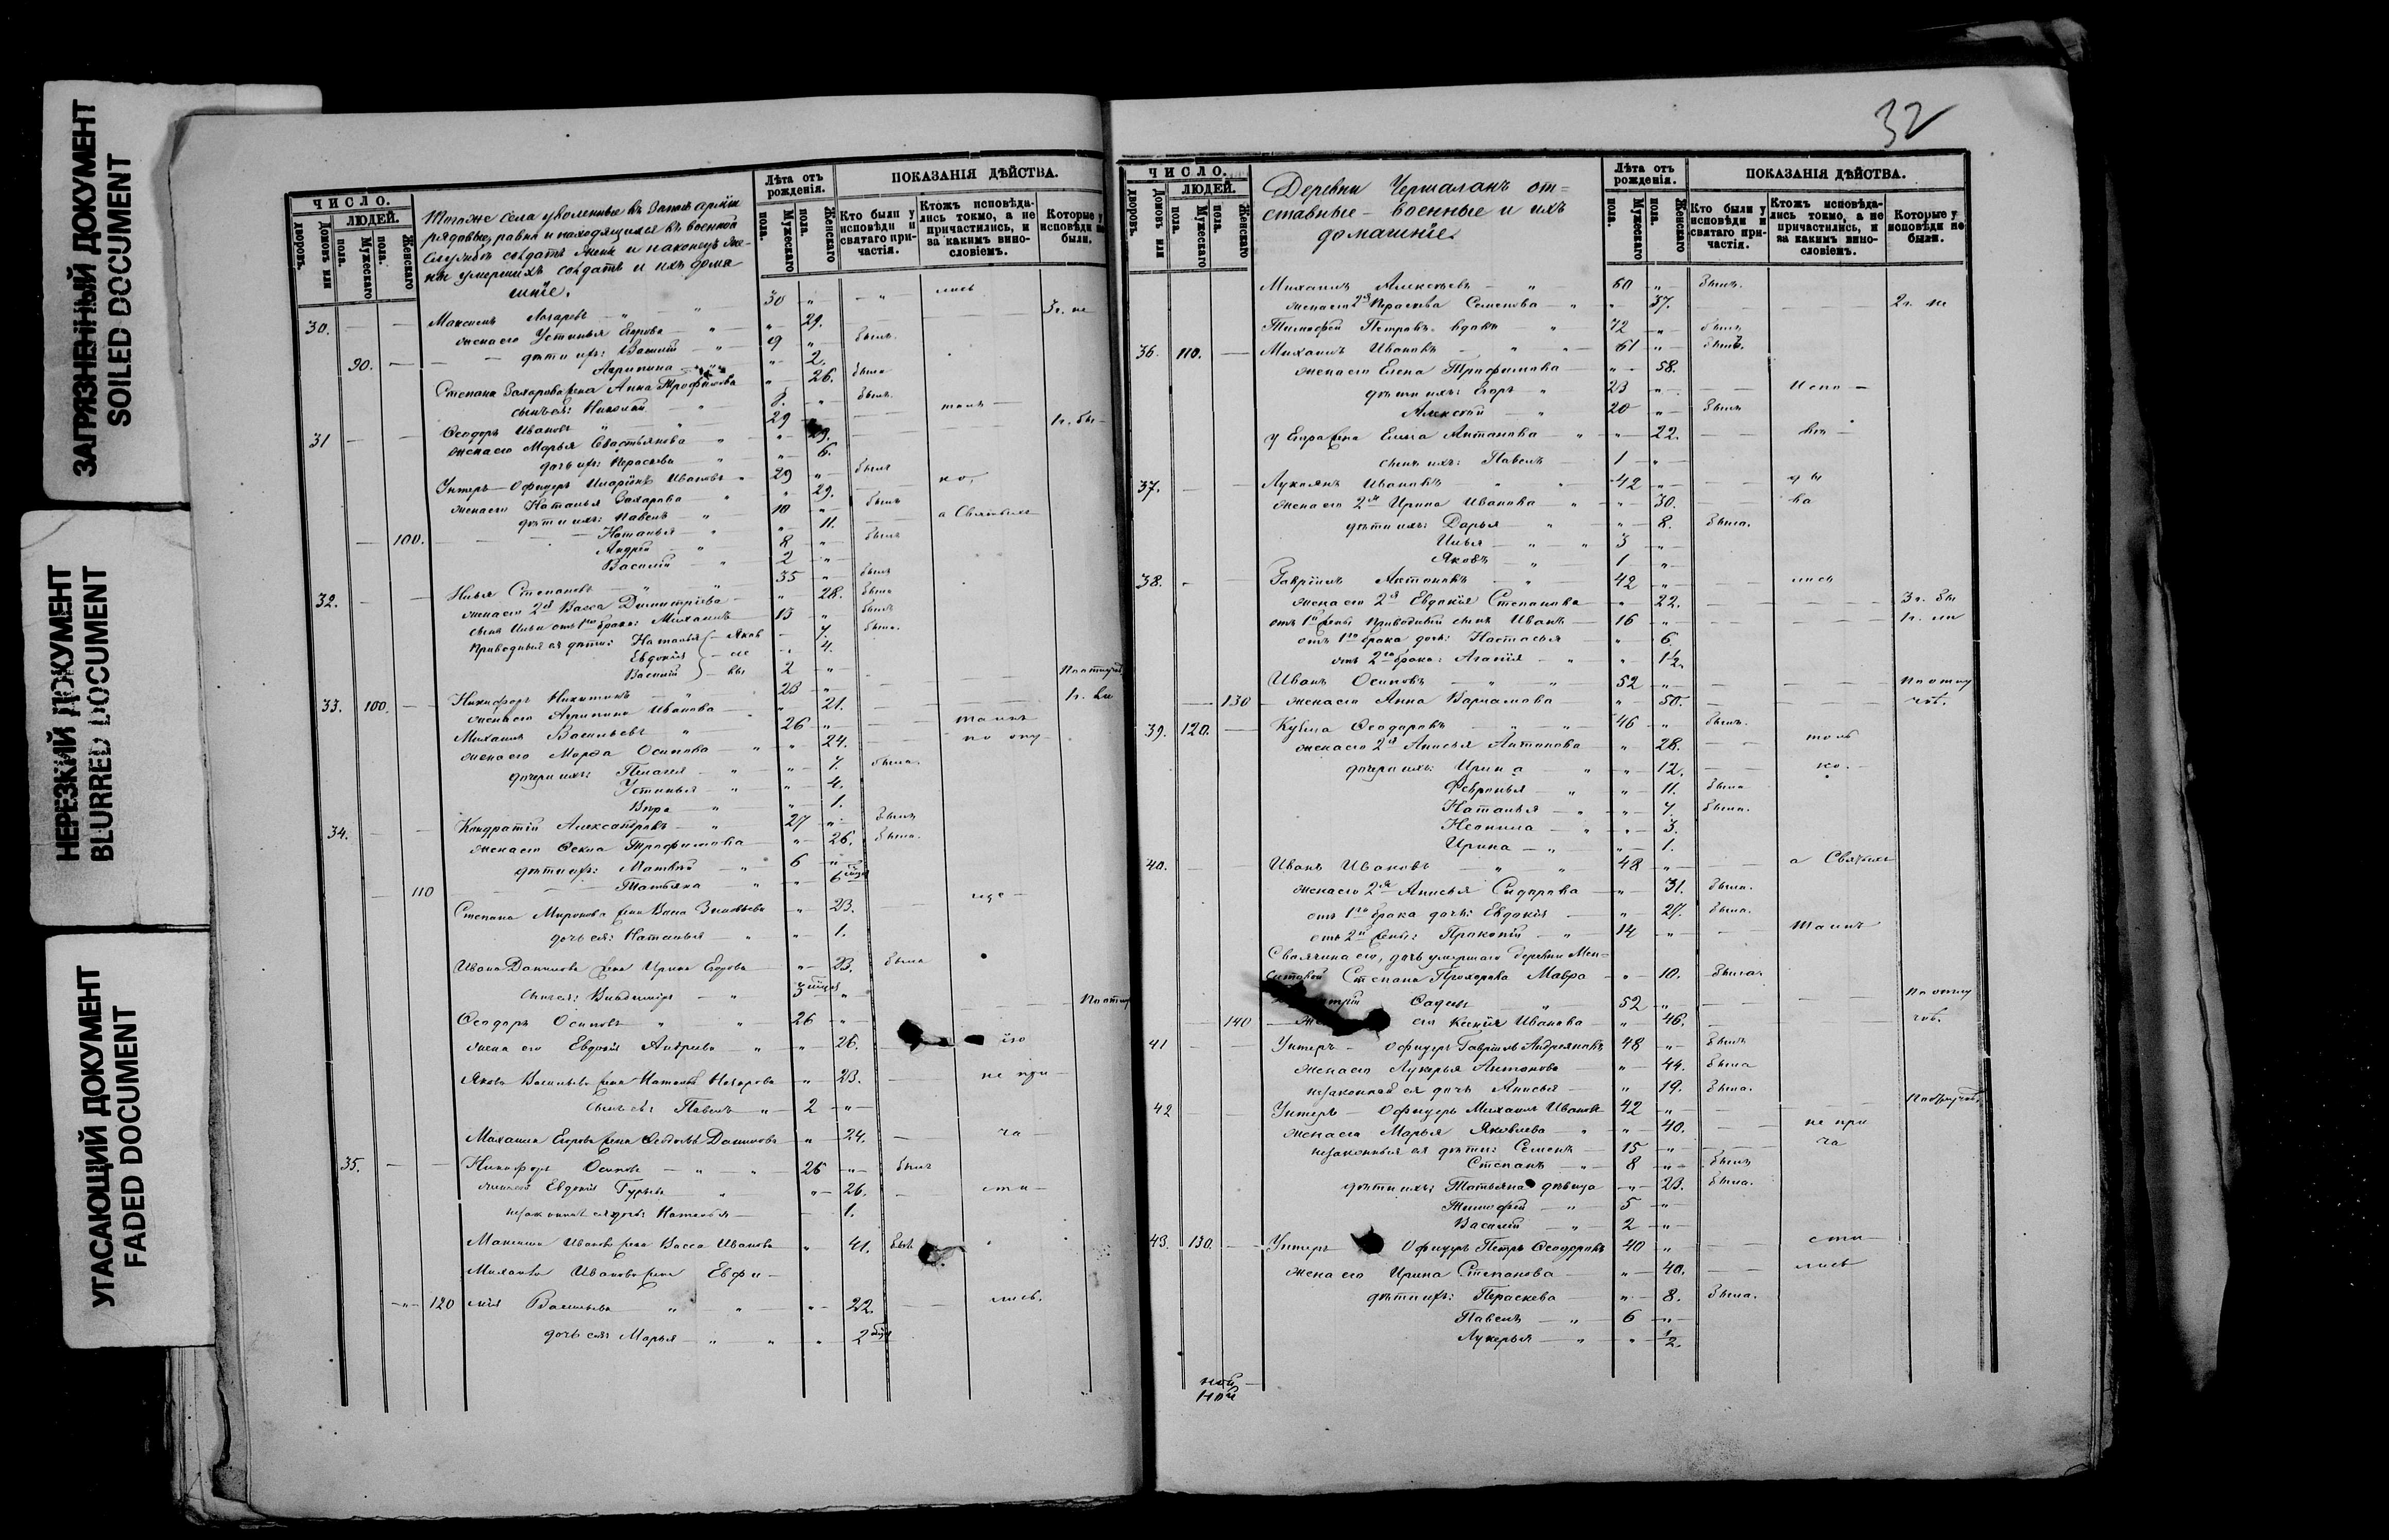 ЗАГРЯЗНЕННЫЙ ДОКУМЕНТ
SOILED DOCUMENT
НЕРЕЗКИЙ ДОКУМЕНТ
BLURRED DOCUMENT
УГАСАЮЩИЙ ДОКУМЕНТ
FADED DOCUMENT
ЧИСЛО.
ЛЮДЕЙ.
Домовъ или дворовъ.
Мужескаго пола.
Женскаго пола.
Тогоже села уволенные въ запасъ арміи
рядовые, равно и находящихся въ военной
службѣ солдатъ жены и наконецъ же-
ны умершихъ солдатъ и ихъ дома
шніе.
Лѣта отъ рожденія.
Мужескаго пола.
Женскаго пола.
ПОКАЗАНІЯ ДѢЙСТВА.
Кто были у исповѣди и святаго при-частія.
Ктожъ исповѣда-лись токмо, а не причастились, и за какимъ вино-словіемъ.
Которые у исповѣди не были.
30. Максимъ Назаровъ 30 лись
жена его Устинья Егорова 29. 3 г. не
90. дѣти ихъ: Василій 9 былъ.
Агрипина 2.
Степана Захарова жена Анна Трофимова 26. была
сынъ ея: Николай 8. былъ.
31 Ѳеодоръ Ивановъ 29 токм
жена его Марья Севастьянова 29. 1 г. бы-
дочь ихъ: Параскева 6.
Унтеръ-Офицеръ Иларіонъ Ивановъ 29 былъ
жена его Наталья Захарова 29. но,
дѣти ихъ: Павелъ 10 былъ
100. Наталья 11. а Святыхъ
Андрей 8 былъ
Василій 2
32. Илья Степановъ 35 былъ
жена его 2я Васса Димитріева 28. была
сынъ Ильи отъ 1го брака: Михаилъ 13 былъ
Приводныя ея дѣти: Наталья Яков 7. была.
Евдокія ле 4.
Василій вы 2
33. 100. Никифоръ Никитинъ 23 По отлуч
жена его Агрипина Иванова 21. 1 г. бы
Михаилъ Васильевъ 26 таинъ
жена его Марѳа Осипова 24. по опу
дочери ихъ: Пелагея 7. была.
Устинья 4.
Вѣра 1.
34. Кондратій Александровъ 27 былъ
жена его Ѳекла Трофимова 26. была.
дѣти ихъ: Матвѣй 6
110 Татьяна 6 мѣся
Степана Миронова жена Васса Зиновьева 23. ще
дочь ея: Наталья 1.
Ивана Данилова жена Ирина Егорова 23. была
сынъ ея: Владиміръ 3 мѣсяц
Ѳеодоръ Осиповъ 26 По отлу
жена его Евдокія Андреева 26. ію
Якова Васильева жена Наталья Назарова 23. не при
сынъ ея: Павелъ 2
Михаила Егорова жена Ѳедосья Данилова 24. ча
35. Никифоръ Осиповъ 26 былъ
жена его Евдокія Гурьева 26. сти
незаконная ея дочь: Наталья 1.
Максима Иванова жена Васса Иванова 41. была
Михаила Иванова жена Евфи-
120 мія Васильева 22. лись.
дочь ея: Марья 2
32
ЧИСЛО.
ЛЮДЕЙ.
Домовъ или дворовъ.
Мужескаго пола.
Женскаго пола.
Деревни Чершаланъ от=
ставные - военные и ихъ
домашніе.
Лѣта отъ рожденія.
Мужескаго пола.
Женскаго пола.
ПОКАЗАНІЯ ДѢЙСТВА.
Кто были у исповѣди и святаго при-частія.
Ктожъ исповѣда-лись токмо, а не причастились, и за какимъ вино-словіемъ.
Которые у исповѣди не были.
Михаилъ Алексѣевъ 60 былъ.
жена его 2я Параскева Семенова 37. 2 г. не
Тимофей Петровъ вдовъ 72 былъ
36. 110. Михаилъ Ивановъ 61 былъ.
жена его Елена Трофимова 58.
дѣти ихъ: Егоръ 23 Испо -
Алексѣй 20 былъ
у Егора жена Елена Антонова 22. вѣ -
сынъ ихъ: Павелъ 1
37. Лукіянъ Ивановъ 42 ды
жена его 2я Ирина Иванова 30. ва
дѣти ихъ: Дарья 8. была.
Илья 3
Яковъ 1
38. Гавріилъ Антоновъ 42 лись
жена его 2я Евдокія Степанова 22. 3 г. бы
отъ 1й жены приводный сынъ Иванъ 16 1 г. ли
отъ 1го брака дочь: Настасья 6.
отъ 2го брака: Агапія 1½.
Иванъ Осиповъ 52 По отлу
130 жена его Анна Варламова 50. чкѣ.
39. 120. Кузма Ѳеодоровъ 46 былъ.
жена его 2я Анисья Антонова 28. толь
дочери ихъ: Ирина 12. ко.
Февронья 11. была
Наталья 7. была.
Неонила 3.
Ирина 1.
40. Иванъ Ивановъ 48 а Святыхъ
жена его 2я Анисья Сидорова 31. была.
отъ 1го брака дочь: Евдокія 27. была.
отъ 2й жены: Прокопій 14 Таинъ
Своячина его, дочь умершаго деревни Мен-
Степана Прохорова Мавра 10. была.
Ѳадѣевъ 52 По отлу
140 его Ксенія Иванова 46. чкѣ.
41 Унтеръ - Офицеръ Гавріилъ Андреяновъ 48 былъ
жена его Лукерья Антонова 44. была
незаконная ея дочь Анисья 19. была.
42 Унтеръ - Офицеръ Михаилъ Ивановъ 42
жена его Марья Яковлева 40. не при
незаконныя ея дѣти: Семенъ 15 ча
Степанъ 8 былъ
дѣти ихъ: Татьяна дѣвица 23. была.
Тимофей 5
Василій 2
43. 130. Унтеръ Офицеръ Петръ Ѳеодоровъ 40 сти
жена его Ирина Степанова 40. лись
дѣти ихъ: Параскева 8. была.
Павелъ 6
Лукерья ½.